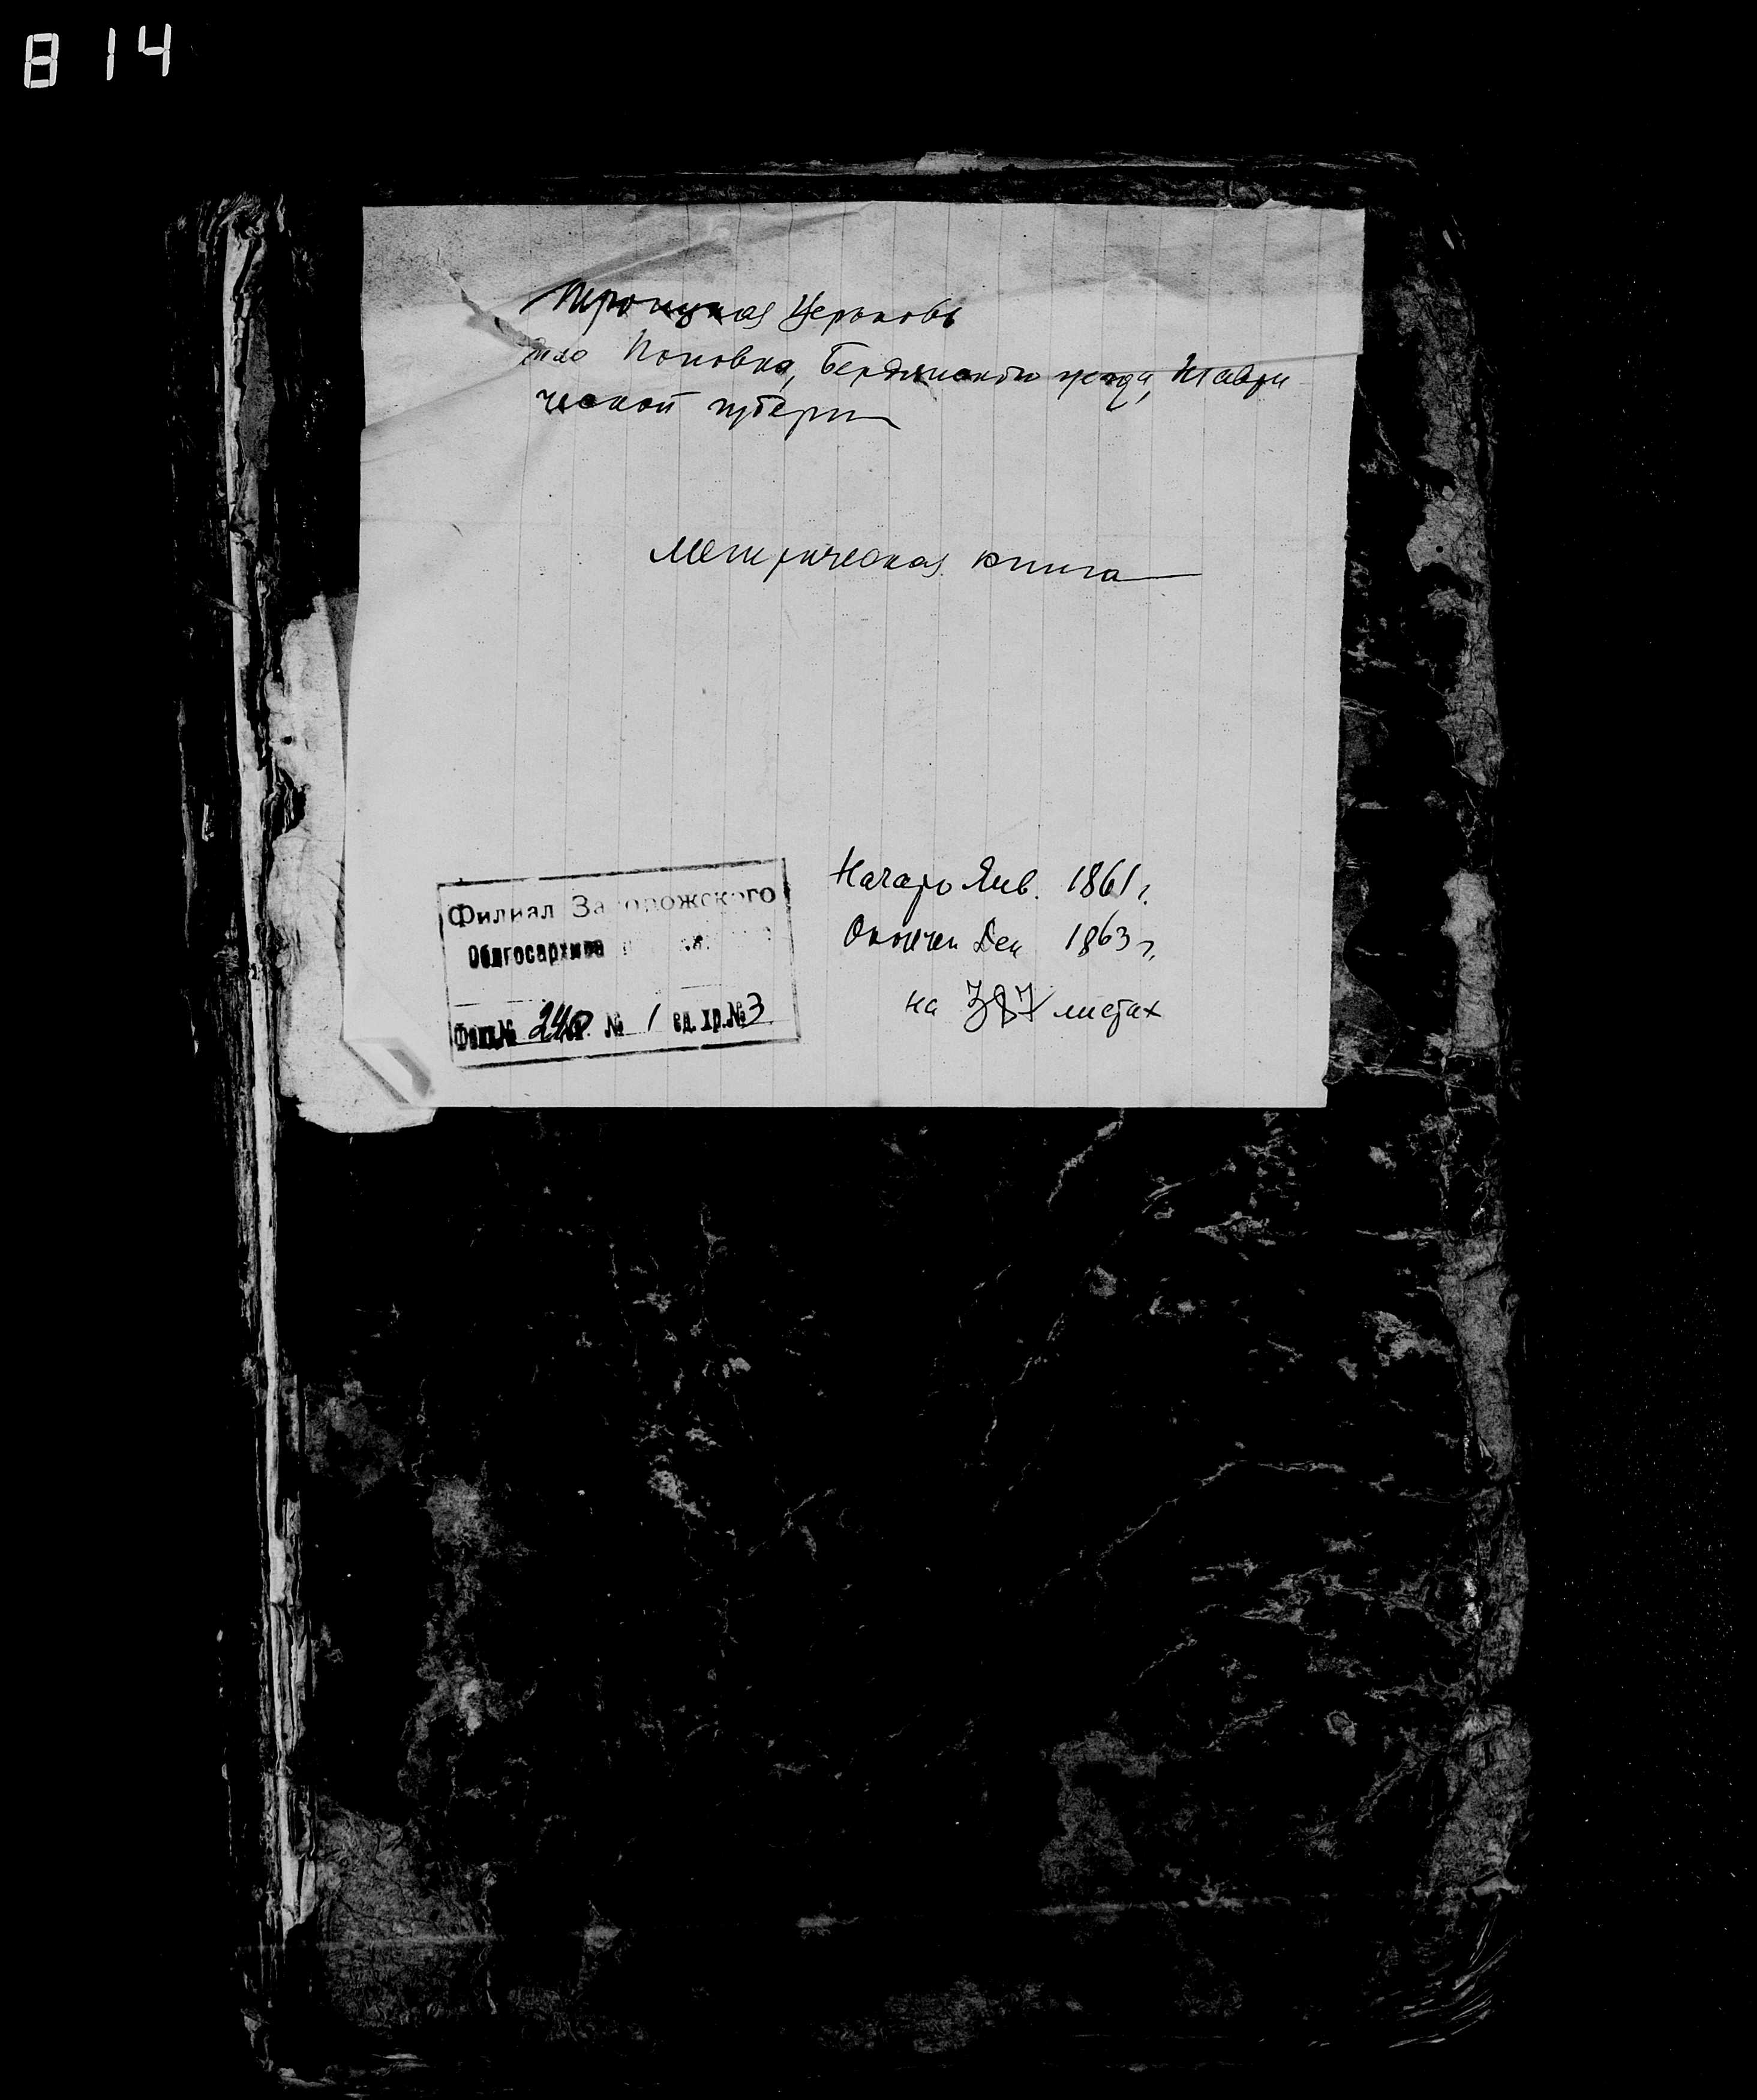 814
Троицкая Церковь
село Поповка, Бердянского уезда, Таври
ческой губерн
Метрическая книга
Начато Янв. 1861 г.
Окончен Дек 1863 г.
на 387 листах
Филиал Запорожского
Облгосархива
Фонд № 246 № 1 ед. хр. № 3